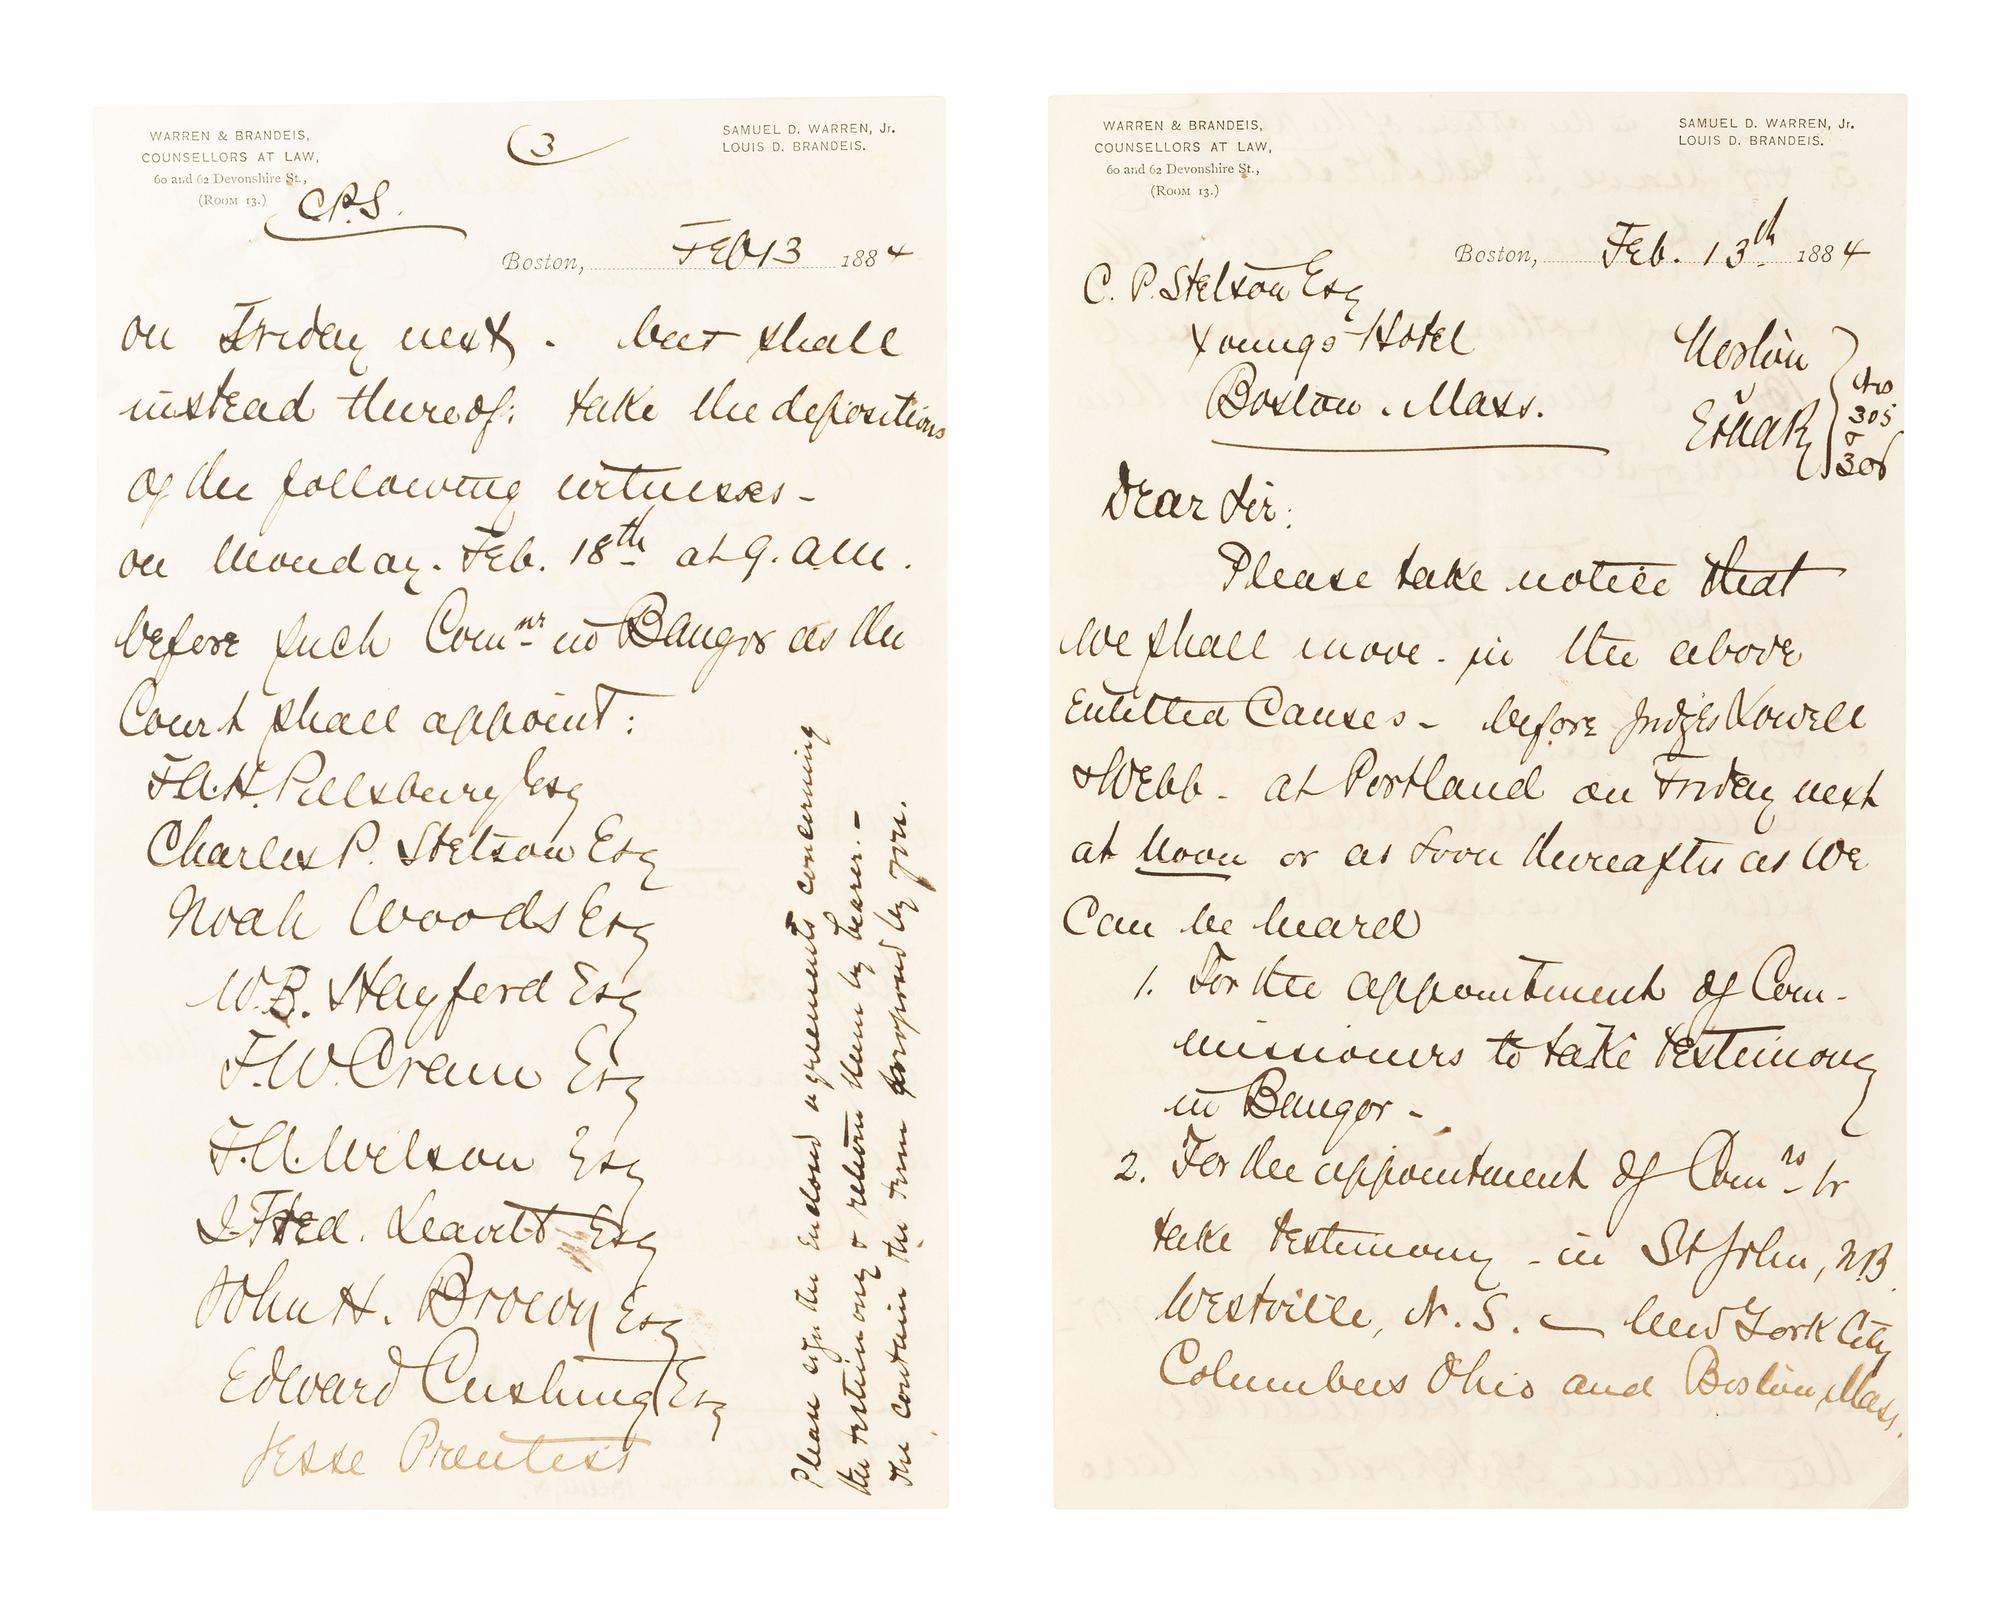 WARREN & BRANDEIS,
COUNSELLORS AT LAW,
60 and 62 Devonshire St.,
(ROOM 13.)
C.P.S.
3
SAMUEL D. WARREN, Jr.
LOUIS D. BRANDEIS.
Boston, Feb 13 1884
on Friday next. but shall
instead thereof: take the depositions
of the following witnesses -
on Monday. Feb. 18th at 9. a.m.
before such Comnr in Bangor as the
Court shall appoint:
F.A.H. Pillsbury Esq
Charles P. Stetson Esq
Noah Woods Esq
W.B. Hayford Esq
F.W. Cram Esq
F.A. Wilson Esq
I. Fred. Leavitt Esq
John H. Brown Esq
Edward Cushing Esq
Jesse Prentiss
Please sign the enclosed agreements concerning
the testimony & return them by bearer. -
The contain the term proposed by you.
WARREN & BRANDEIS,
COUNSELLORS AT LAW,
60 and 62 Devonshire St.,
(ROOM 13.)
SAMUEL D. WARREN, Jr.
LOUIS D. BRANDEIS.
Boston, Feb. 13th 1884
C. P. Stetson Esq
Youngs Hotel
Boston. Mass.
v
Nos
305
&
306
Dear Sir:
Please take notice that
We shall move. in the above
Entitled Causes - before Judges Lowell
& Webb - at Portland on Friday next
at Noon or as soon thereafter as We
Can be heard
1. For the appointment of Com-
missioners to take testimony
in Bangor -
2. For the appointment of Comrs to
take testimony - in St John, N.B.
Westville, N.S. - New York City
Columbus Ohio and Boston Mass.